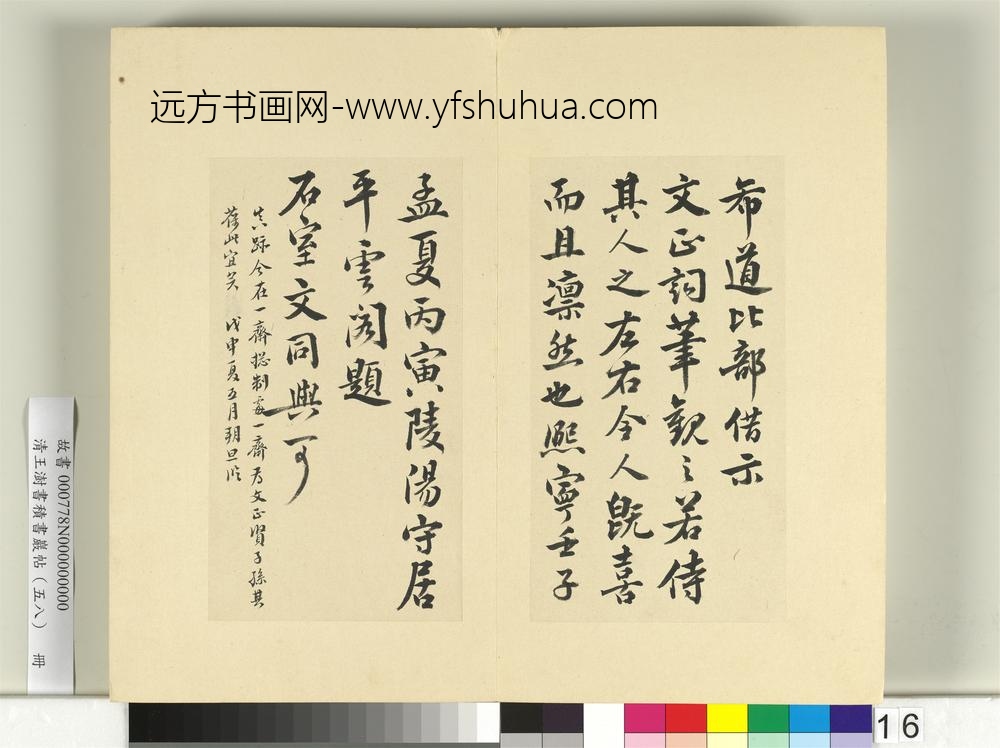 远方书画网-www.yfshuhua.com
希道比部借示
文正詞筆観之若侍
其人之左右令人既喜
而且凛然也熈寧壬子
孟夏丙寅陵陽守居
平雲閣題
石室文同與可
真跡今在一齋總制處一齋為文正賢子孫其
葆此宜矣 戊申夏五月
故書 000778N000000000
清王澍書積書巖帖(五八) 冊
16